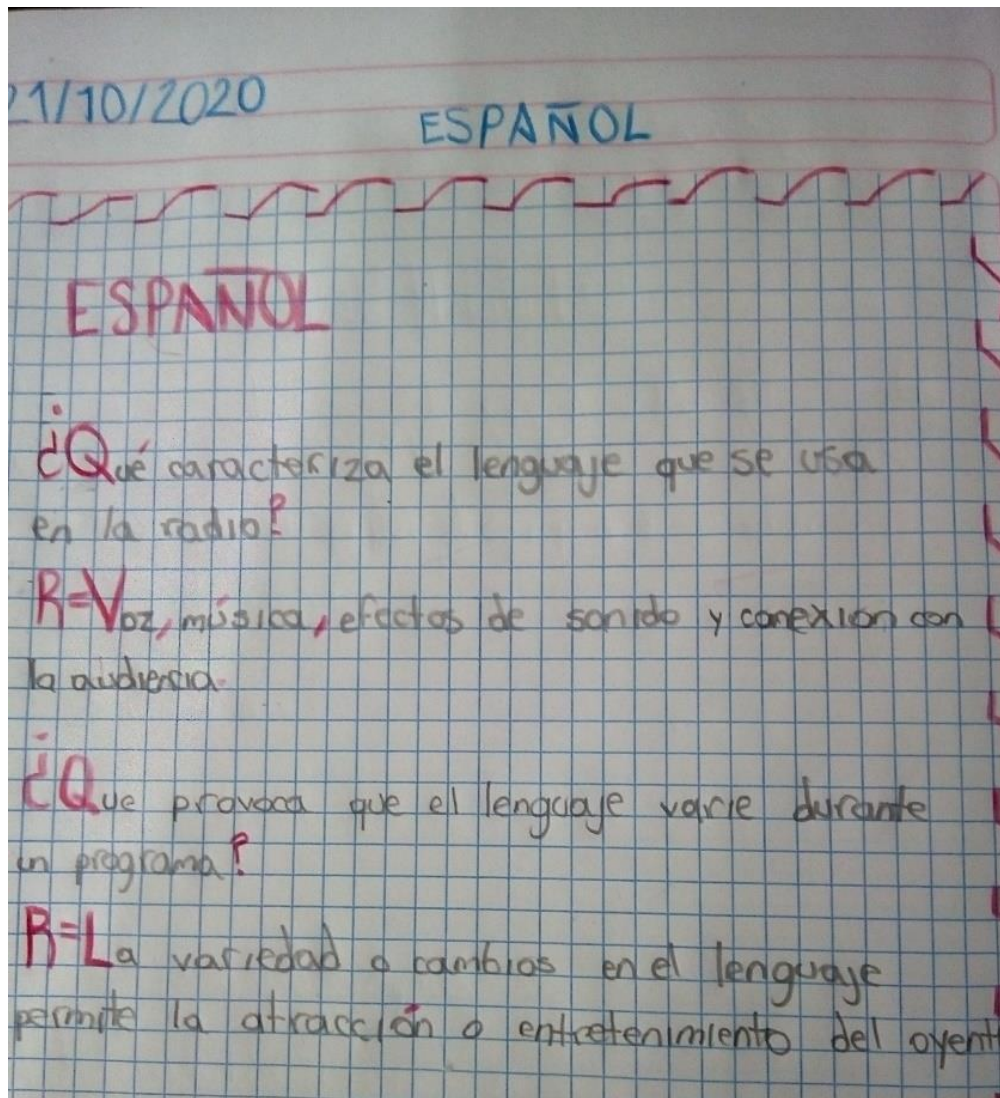 21/10/2020
ESPAÑOL
ESPAÑOL
¿Qué caracteriza el lenguaje que se usa
en la radio?
R=Voz, música, efectos de sonido y conexión con
la audiencia.
¿Que provoca que el lenguaje varie durante
un programa?
R=La variedad o cambios en el lenguaje
permite la atracción o entretenimiento del oyente